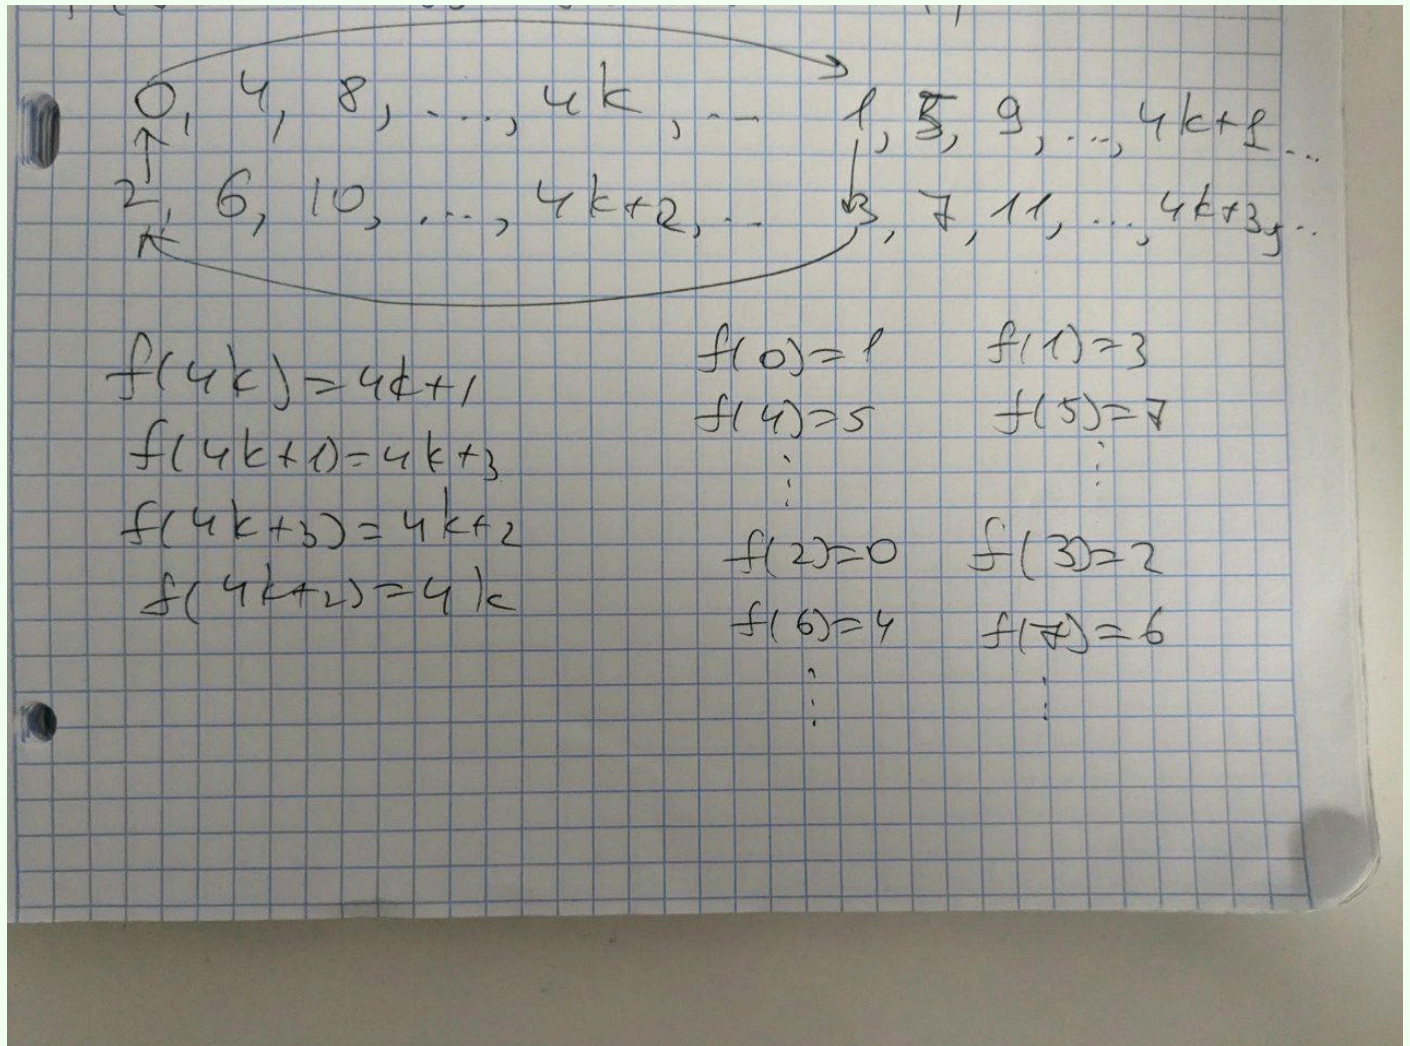 0, 4, 8, ..., 4k, ... 1, 5, 9, ..., 4k+1 ...
2, 6, 10, ..., 4k+2, .. 3, 7, 11, ..., 4k+3, ..
f(4k)=4k+1
f(4k+1)=4k+3
f(4k+3)=4k+2
f(4k+2)=4k
f(0)=1 f(1)=3
f(4)=5 f(5)=7
⋮ ⋮
f(2)=0 f(3)=2
f(6)=4 f(7)=6
⋮ ⋮